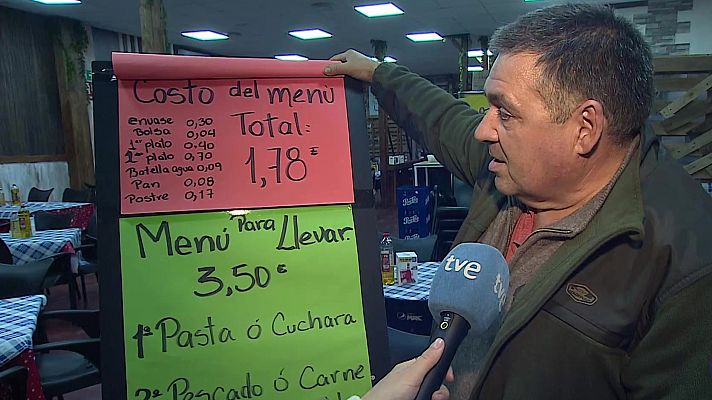 Costo del menú
envase 0,30
Bolsa 0,04
1er plato 0.40
2º plato 0,70
Botella agua 0,09
Pan 0,08
Postre 0,17
Total:
1,78 €
Menú Para Llevar.
3,50 €
1º Pasta ó Cuchara
2º Pescado ó Carne
tve